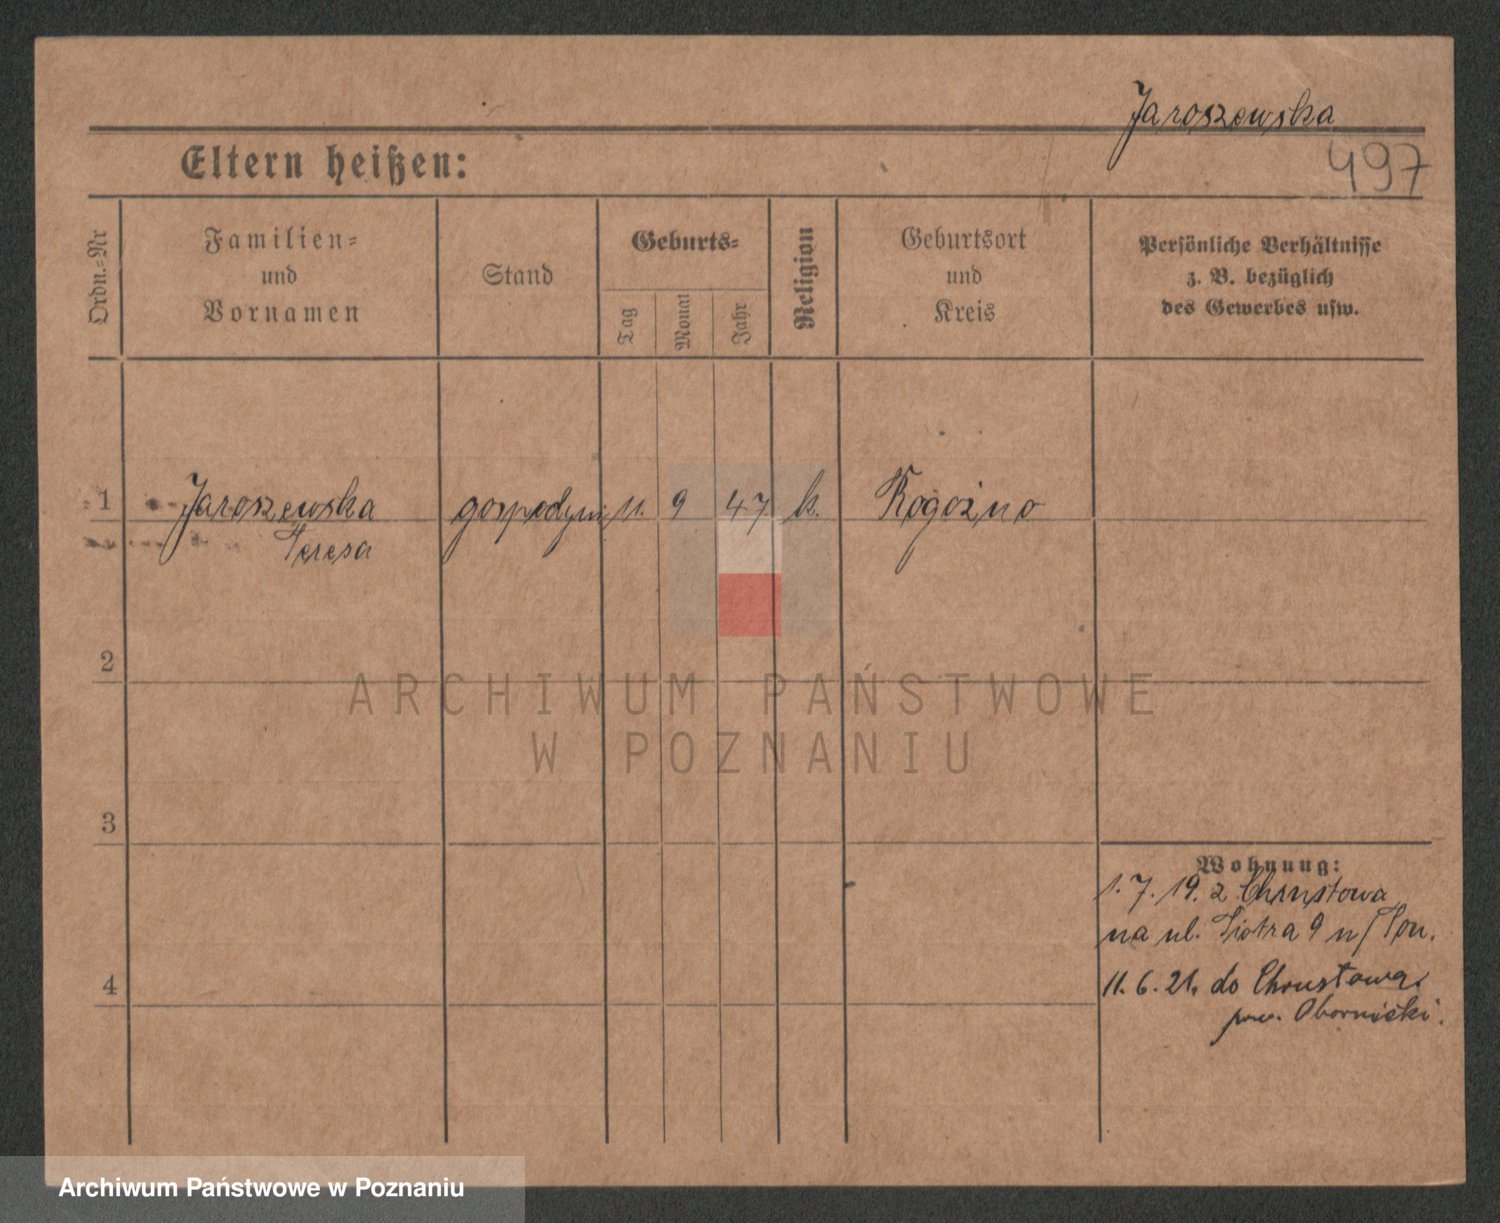 Jaroszewska
Eltern heißen:
497
Ordn.-Nr
Familien-
und
Vornamen
Stand
Geburts-
Tag
Monat
Jahr
Religion
Geburtsort
und
Kreis
Persönliche Verhältnisse
z. B. bezüglich
des Gewerbes usw.
1 Jaroszewska gospodyni 11. 9 47 k. Rogoźno
Teresa
2
ARCHIWUM PAŃSTWOWE
W POZNANIU
3
Wohnung:
1. 7. 19. z Chrustowa
na ul. Piotra 9 n/
4
11. 6. 21. do Chrustowa.
pow. Obornicki.
Archiwum Państwowe w Poznaniu